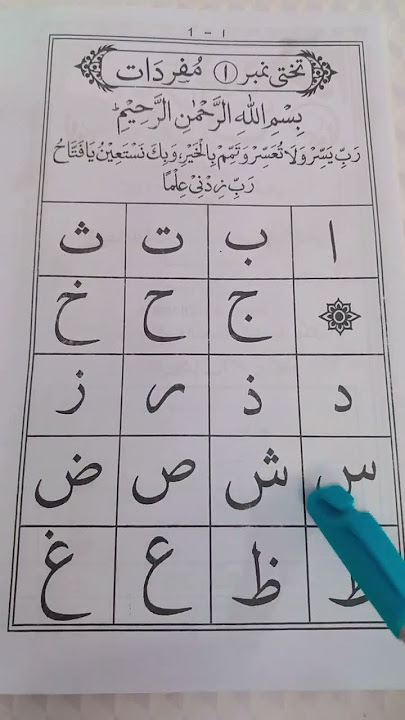 1 - ١
تختی نمبر ١ مُفردَات
بِسْمِ اللهِ الرَّحْمٰنِ الرَّحِيْمِ
رَبِّ يَسِّرْ وَلَا تُعَسِّرْ وَتَمِّمْ بِالْخَيْرِ، وَبِكَ نَسْتَعِيْنُ يَا فَتَّاحُ
رَبِّ زِدْنِيْ عِلْمًا
ا ب ت ث
ج ح خ
د ذ ر ز
س ش ص ض
ط ظ ع غ